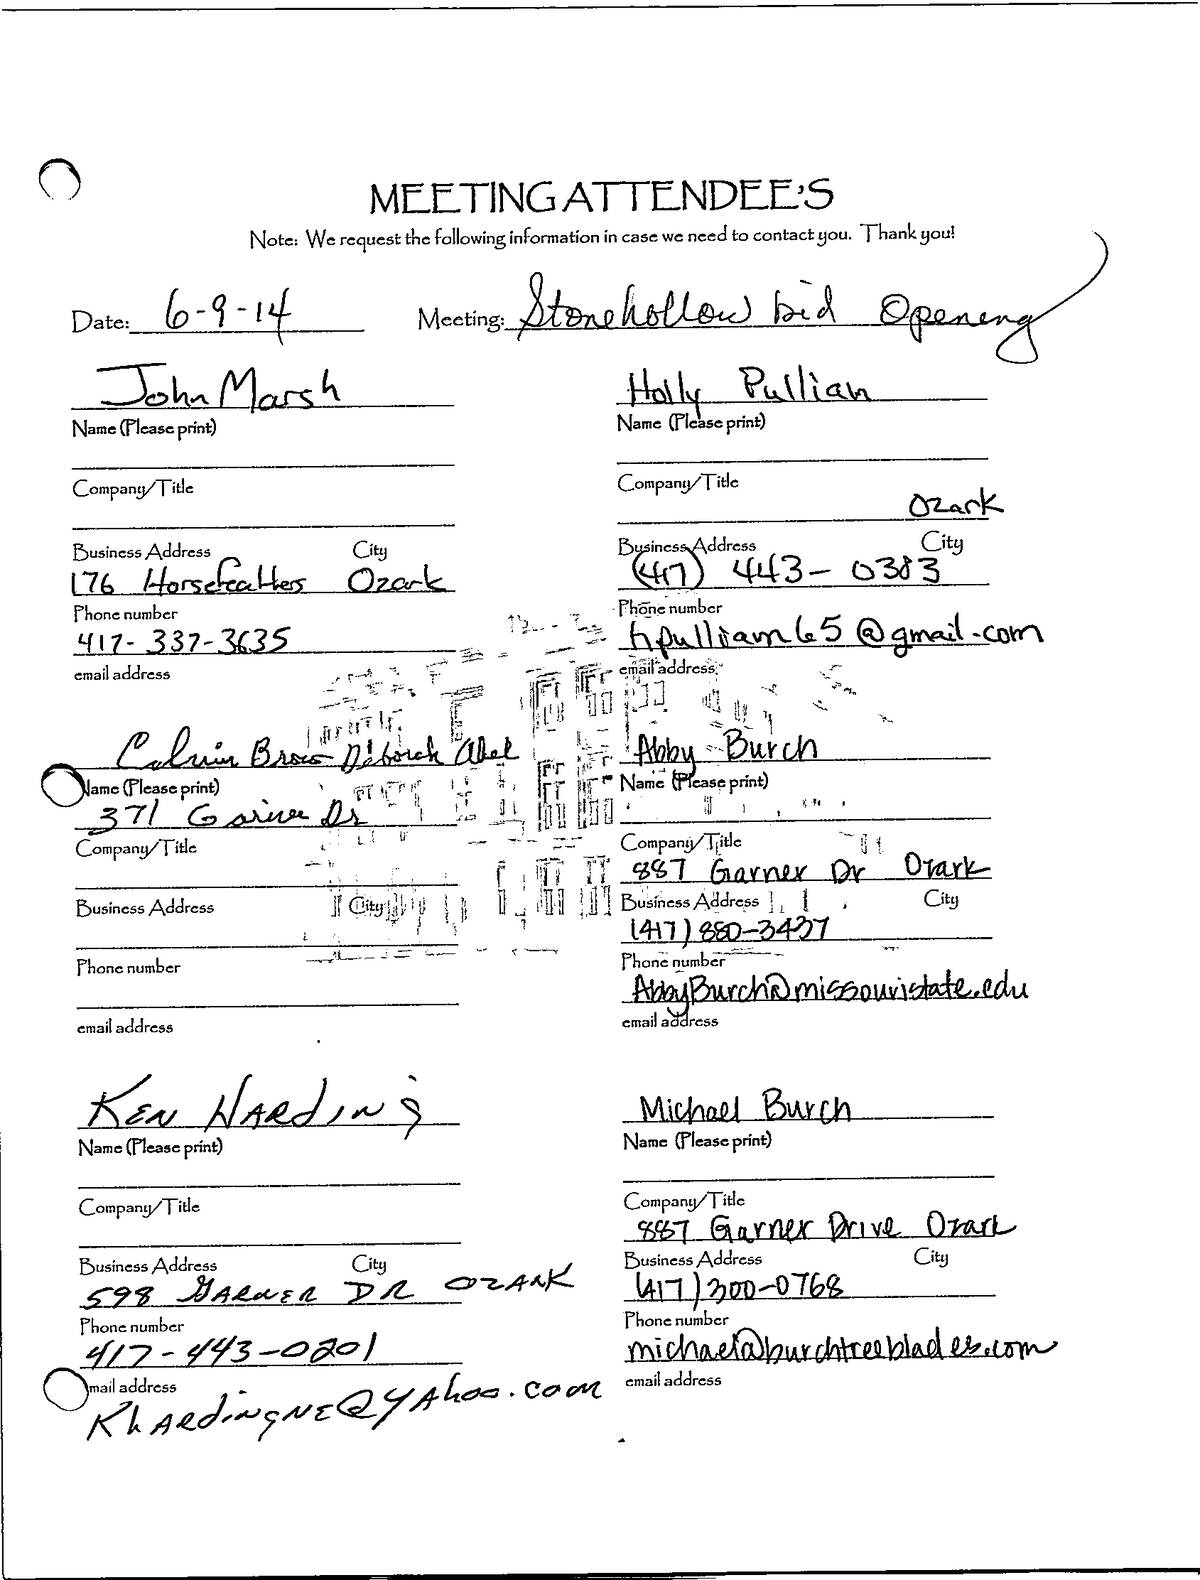 MEETING ATTENDEE'S
Note: We request the following information in case we need to contact you. Thank you!
Date: 6-9-14 Meeting: Stonehollow bid Opening
John Marsh
Name (Please print)
Company/Title
Business Address City
176 Horsefeathers Ozark
Phone number
417-337-3635
email address
Holly Pulliam
Name (Please print)
Company/Title
Ozark
Business Address City
(417) 443-0383
Phone number
hpulliam65@gmail.com
email address
Calvin Brown Deborah Abel
Name (Please print)
371 Dr
Company/Title
Business Address City
Phone number
email address
Abby Burch
Name (Please print)
Company/Title
887 Garner Dr Ozark
Business Address City
(417) 880-3437
Phone number
AbbyBurch@missouristate.edu
email address
Ken Harding
Name (Please print)
Company/Title
Business Address City
598 Garner DR OZARK
Phone number
417-443-0201
mail address
KhARdingNE@YAhoo.com
Michael Burch
Name (Please print)
Company/Title
887 Garner Drive Ozark
Business Address City
(417) 300-0768
Phone number
michael@burchtreeblades.com
email address